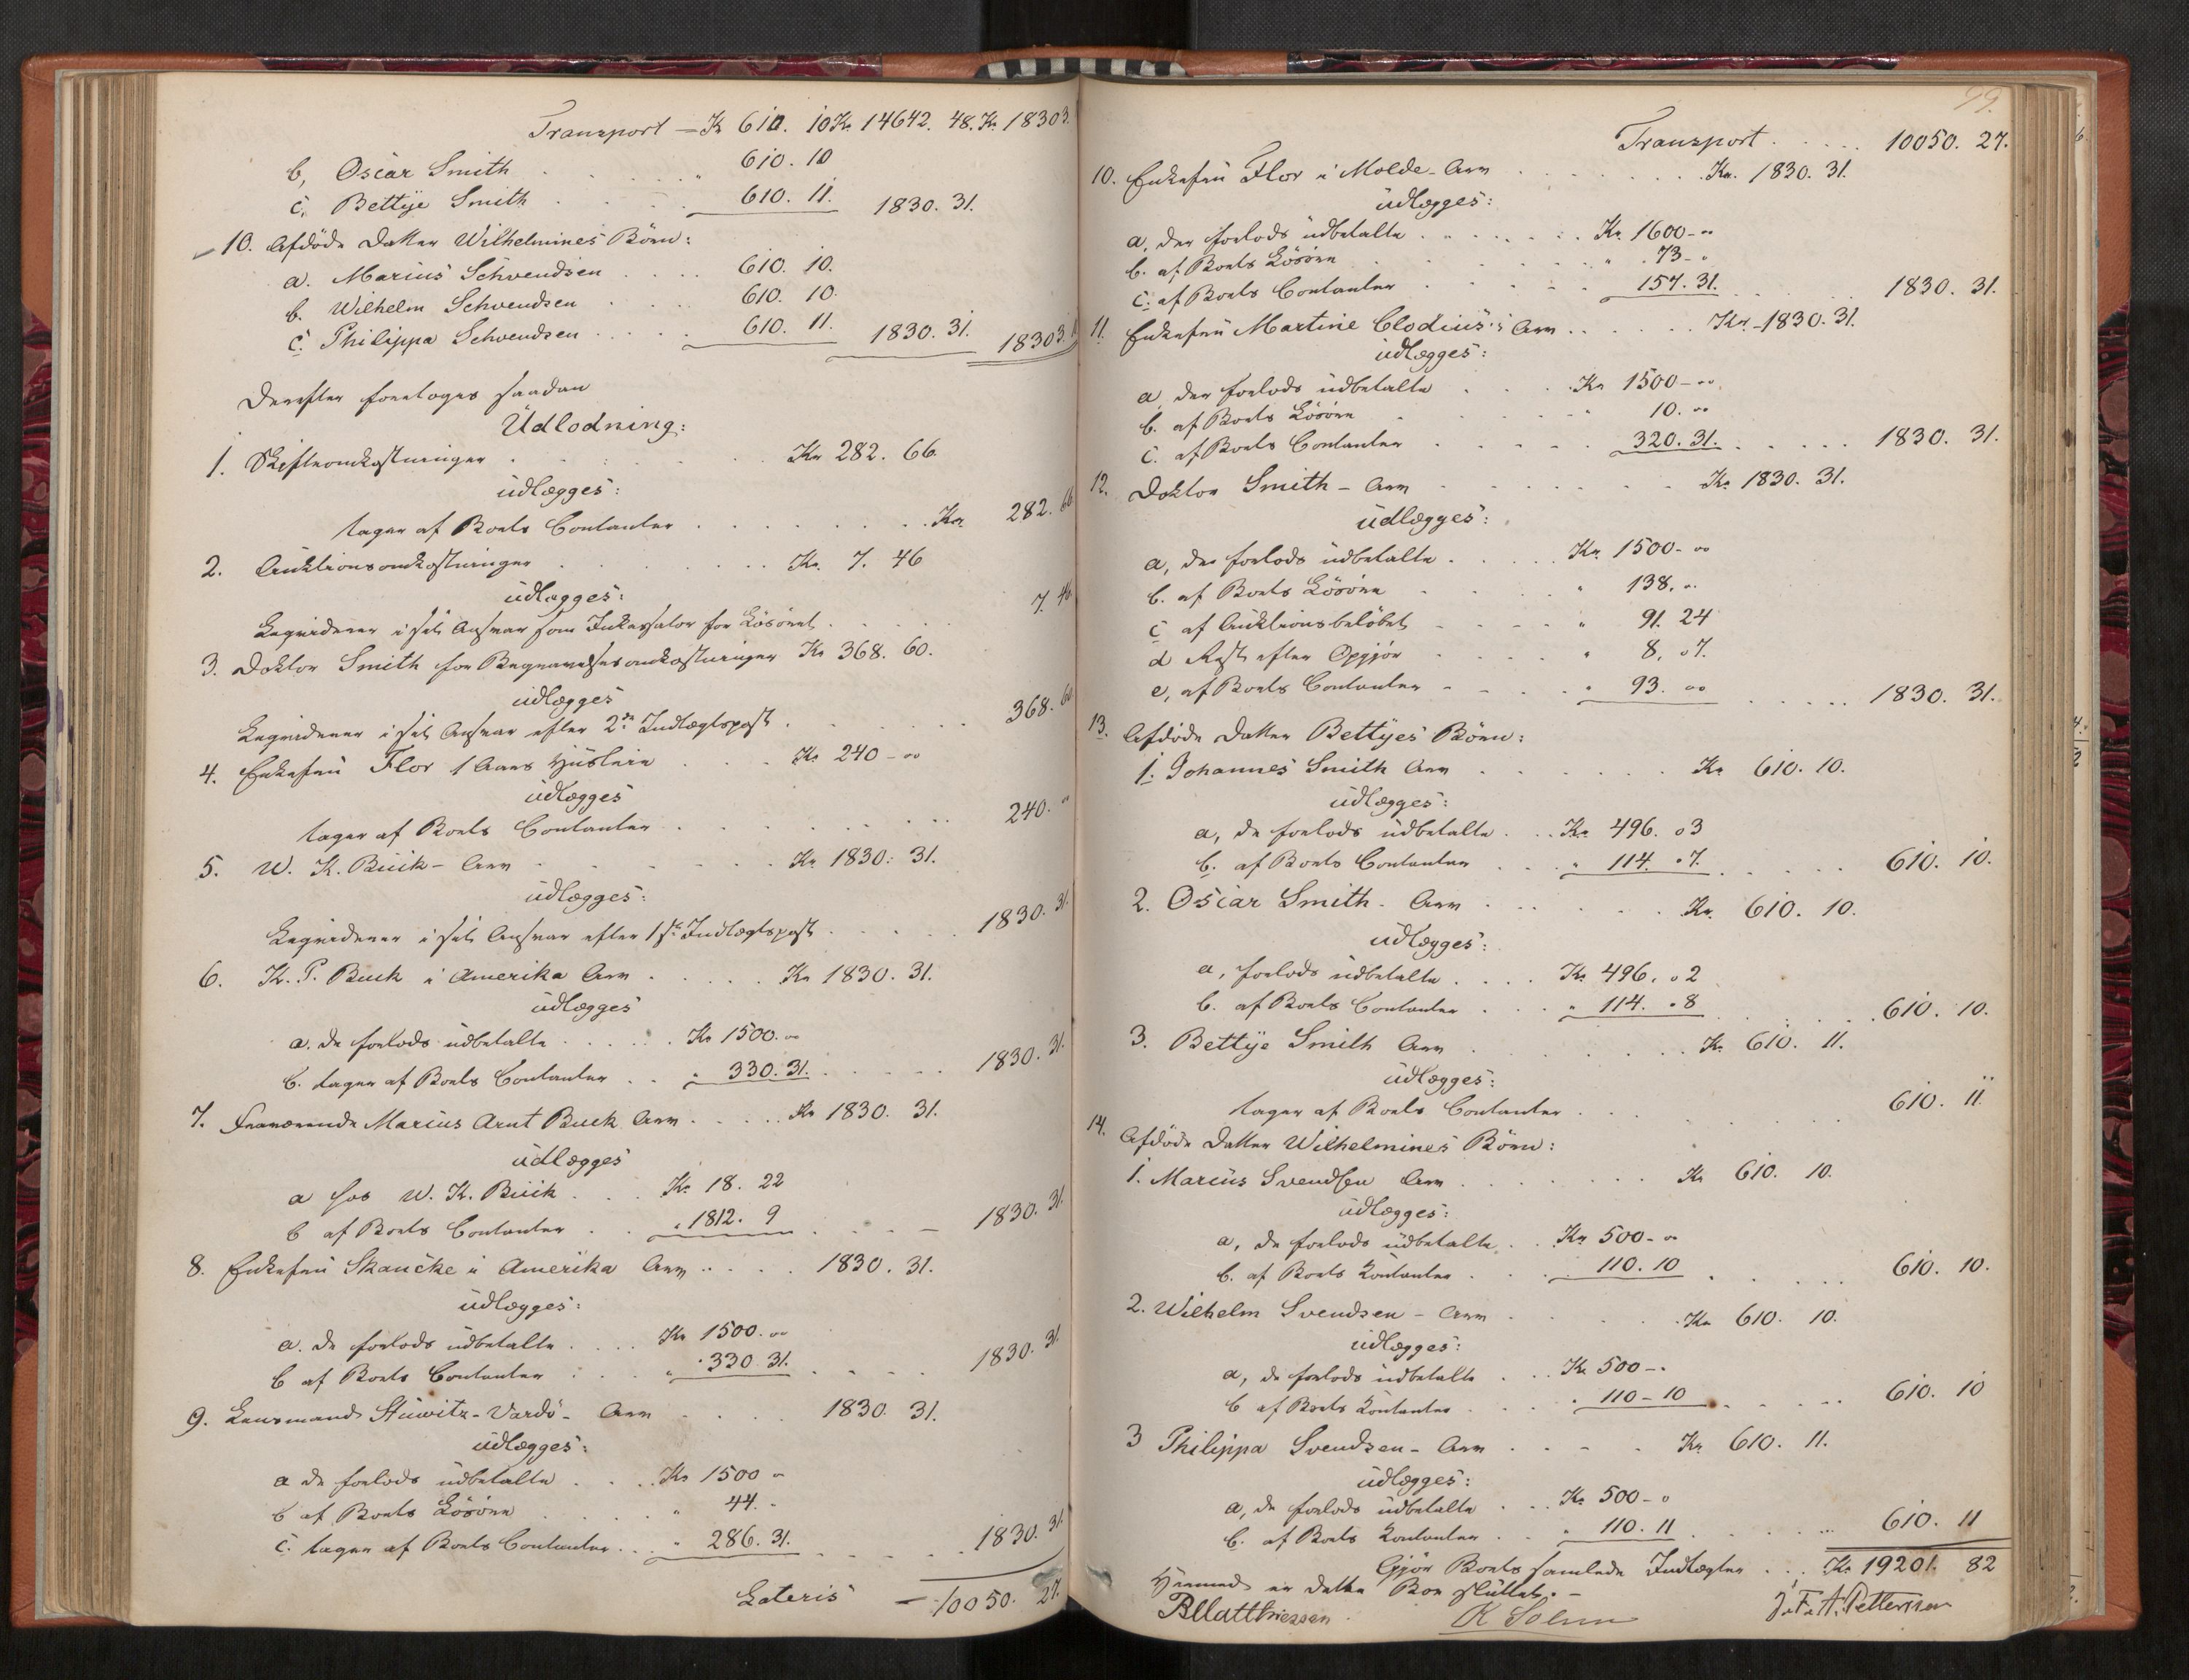 Transport – Kr 610. 10 Kr 14642. 48. Kr 18303.
b, Oscar Smith . . . . " 610. 10
c, Bettye Smith . . . . 610. 11. 1830. 31.
10. Afdöde Datter Wilhelmines Börn:
a. Marius Schvendsen . . . . 610. 10.
b. Wilhelm Schvendsen . . . . 610. 10.
c. Philippa Schvendsen . . . . 610. 11. 1830. 31. 18303.
Derefter foretoges saadan
Udlodning:
1. Skifteomkostninger . . . . Kr 282. 66.
udlægges:
tages af Boets Contanter . . . . Kr 282. 66
2. Auktionsomkostninger . . . . Kr. 7. 46
udlægges:
Reqvidenen i sit Ansvar som Inkassator for Lösöret . . . . 7. 46
3. Doktor Smith for Begravelsesomkostninger Kr 368. 60.
udlægges
Reqvidenen i sit Ansvar efter 2den Indtægtspost . . . . 368. 60
4. Enkefru Flor 1 Aars Husleie . . . Kr 240 – "
udlægges
tages af Boets Contanter . . . . 240. "
5. W. K. Buck – Arv . . . . Kr 1830. 31.
udlægges:
Reqvidenen i sit Ansvar efter 1ste Indtægtspost . . . . 1830. 31.
6. K. P. Buck i Amerika Arv . . . . Kr 1830. 31.
udlægges
a. de forlods udbetalte . . . . Kr 1500. "
b. tages af Boets Contanter . . " 330. 31. . . . . 1830. 31.
7. Fraværende Marius Arnt Buck Arv . . . . Kr 1830. 31.
udlægges
a hos W. K. Buck . . . Kr 18. 22
b af Boets Contanter . . " 1812. 9 . . . – 1830. 31.
8. Enkefru Skancke i Amerika Arv . . . . 1830. 31.
udlægges:
a. de forlods udbetalte . . . . Kr 1500. "
b af Boets Contanter . . . " 330. 31. . . . . 1830. 31.
9. Lensmand Stuwitz – Vardö – Arv . . . . 1830. 31.
udlægges:
a de forlods udbetalte . . . Kr 1500 "
b af Boets Lösöre . . . . " 44. "
c. tages af Boets Contanter . . . " 286. 31. . . . . 1830. 31
Lateris – 10050. 27.
99.
Transport . . . . . 10050. 27.
10. Enkefru Flor i Molde – Arv . . . . Kr. 1830. 31.
udlægges:
a, den forlods udbetalte . . . . Kr. 1600 – "
b. af Boets Lösöre . . . . " 73 – "
c. af Boets Contanter . . . . 157. 31. . . . . 1830. 31.
11. Enkefru Martine Clodius's Arv . . . . Kr. – 1830. 31.
udlægges:
a, den forlods udbetalte . . . . Kr 1500 – "
b. af Boets Lösöre . . . . " 10. "
c. af Boets Contanter . . . . 320. 31. . . . . 1830. 31.
12. Doktor Smith – Arv . . . . Kr. 1830. 31.
udlægges:
a, den forlods udbetalte . . . . Kr. 1500 – "
b. af Boets Lösöre . . . . " 138. "
c af Auktionsbelöbet . . . . " 91. 24
d Rest efter Opgjör . . . . " 8. 07.
e, af Boets Contanter . . . . " 93. " . . . . 1830. 31.
13. Afdöde Datter Bettyes Börn:
1. Johannes Smith Arv . . . . Kr 610. 10.
udlægges:
a, de forlods udbetalte . . . Kr 496. 03
b. af Boets Contanter . . . " 114. 07. . . . . 610. 10.
2. Oscar Smith – Arv . . . . Kr. 610. 10.
udlægges:
a, forlods udbetalte . . . . Kr 496. 02
b. af Boets Contanter . . . " 114. 08 . . . . 610. 10.
3. Bettye Smith Arv . . . . Kr. 610. 11.
udlægges:
tages af Boets Contanter . . . . 610. 11.
14. Afdöde Datter Wilhelmines Börn:
1. Marius Svendsen Arv . . . . Kr 610. 10.
udlægges:
a, de forlods udbetalte . . Kr 500 – "
b. af Boets Kontanter . . . 110. 10 . . . . 610. 10.
2. Wilhelm Svendsen – Arv . . . . Kr 610. 10.
udlægges:
a, de forlods udbetalte . . . Kr 500 – "
b af Boets Kontanter . . . . " 110 – 10 . . . . 610. 10
3 Philippa Svendsen – Arv . . . . Kr 610. 11.
udlægges:
a, de forlods udbetalte . . . Kr 500 – "
b. af Boets Kontanter . . . " 110. 11 . . . . 610. 11
Gjör Boets samlede Indtægter . . . Kr 19201. 82
Hermed er dette Bo sluttet. –
B Matthiessen. K Solem J. F. A. Pettersen